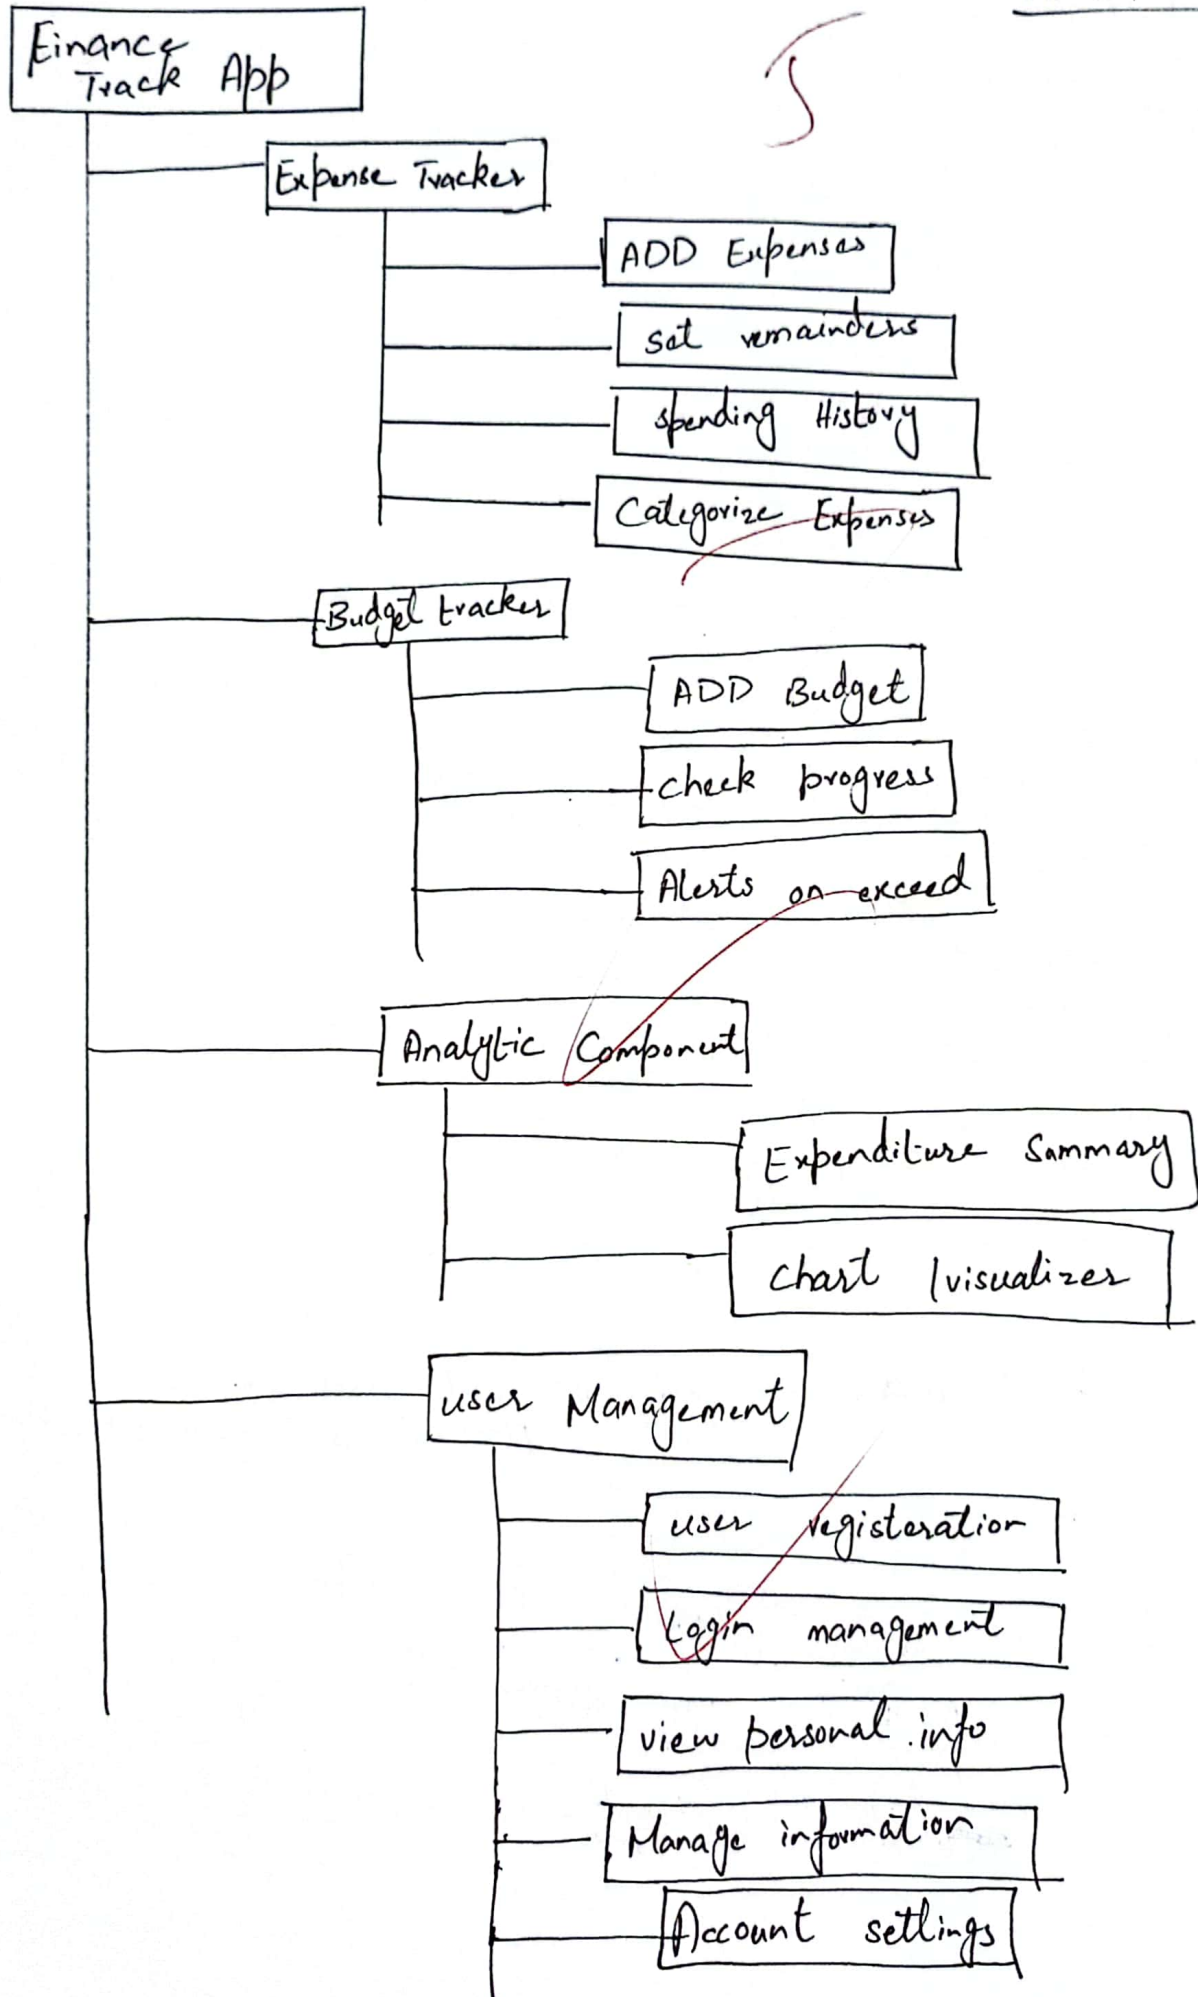 Finance
Track App
Expense Tracker
ADD Expenses
Set remainders
spending History
Categorize Expenses
Budget tracker
ADD Budget
check progress
Alerts on exceed
Analytic Component
Expenditure Summary
chart /visualizer
user Management
user registeration
Login management
view personal info
Manage information
Account settings